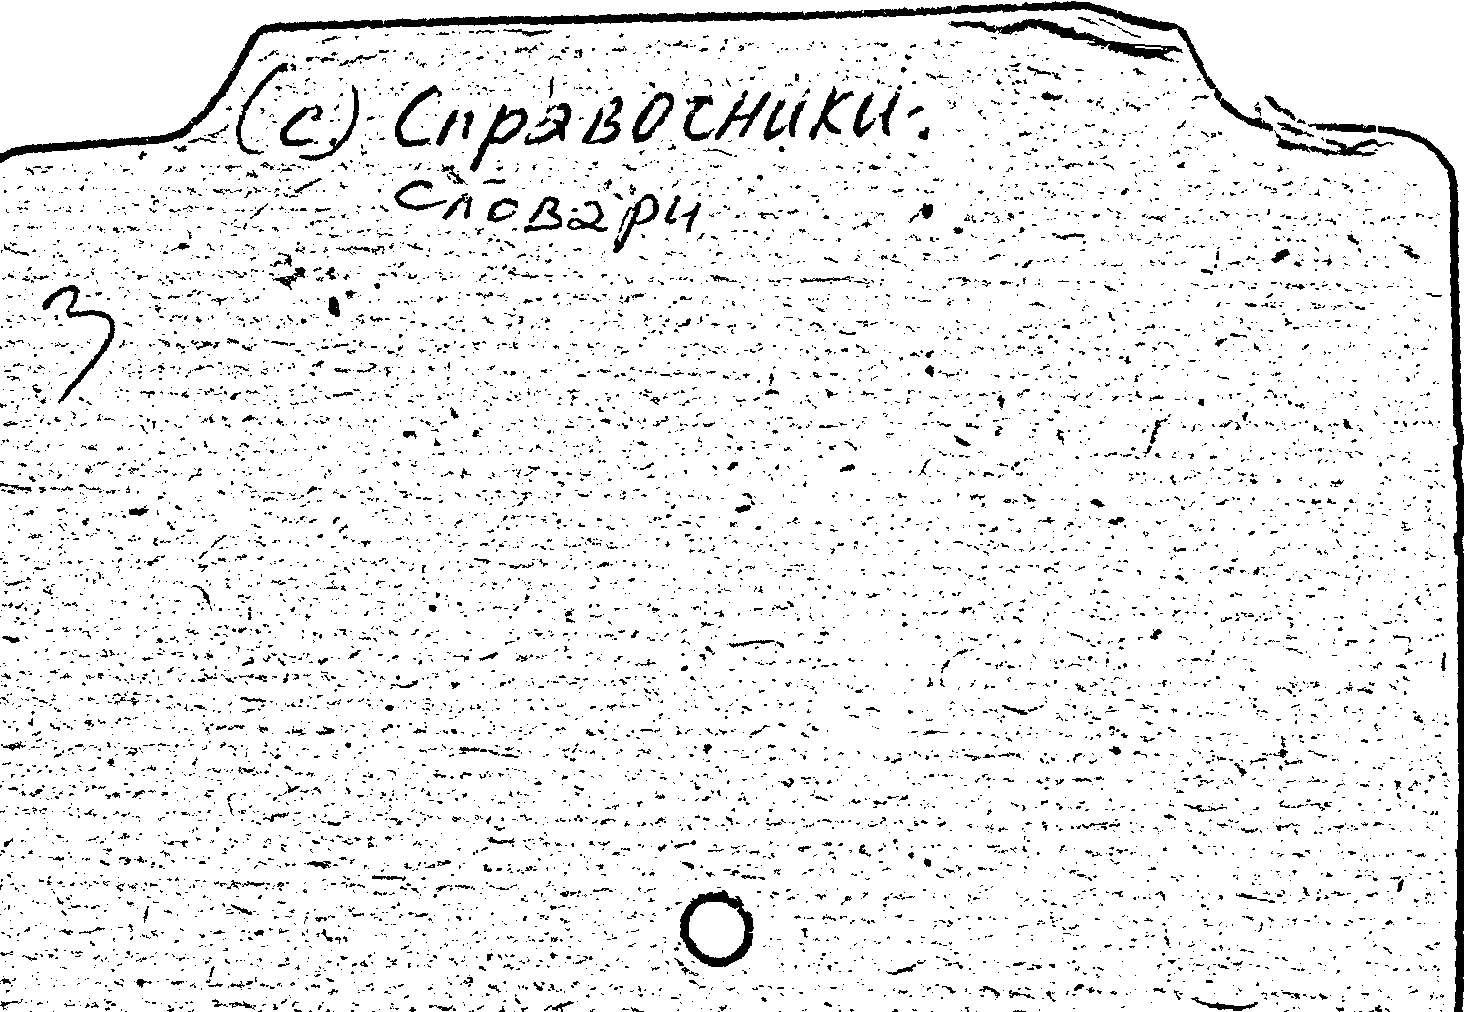 (с) Справочники.
Словари
3